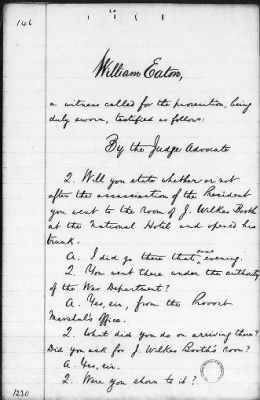 146
William Eaton,
a witness called for the prosecution, being
duly sworn, testified as follows:
By the Judge Advocate
Q. Will you state whether or not
after the assassination of the President
you went to the room of J. Wilkes Booth
at the National Hotel and opened his
trunk.
A. I did go there that same evening.
Q. You went there under the authority
of the War Department?
A. Yes, sir, from the Provost
Marshal's Office.
Q. What did you do on arriving there?
Did you ask for J. Wilkes Booth's room?
A. Yes, sir.
Q. Were you shown to it?
1230